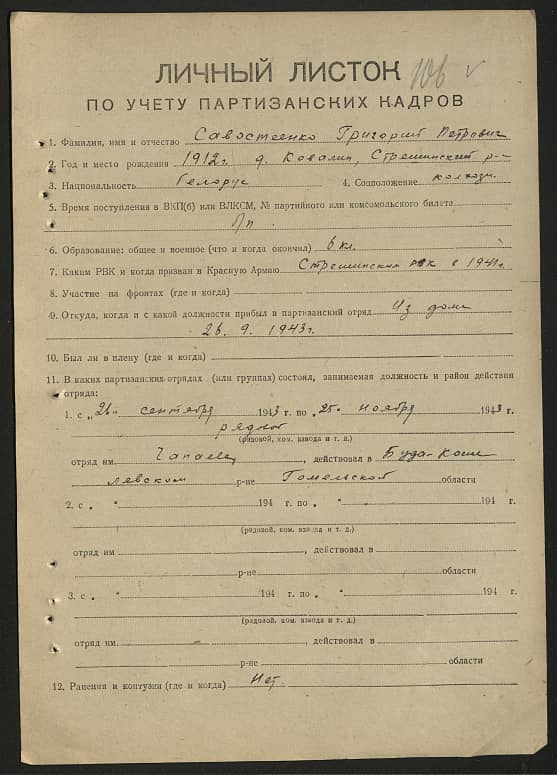 ЛИЧНЫЙ ЛИСТОК 106
ПО УЧЕТУ ПАРТИЗАНСКИХ КАДРОВ
1. Фамилия, имя и отчество Савостеенко Григорий Петрович
2. Год и место рождения 1912г. д. Ковали, Стрешинский р-н
3. Национальность Белорус 4. Соцположение колхозн.
5. Время поступления в ВКП(б) или ВЛКСМ, № партийного или комсомольского билета
б/п
6. Образование: общее и военное (что и когда окончил) 6 кл.
7. Каким РВК и когда призван в Красную Армию Стрешинским рвк в 1941г.
8. Участие на фронтах (где и когда)
9. Откуда, когда и с какой должности прибыл в партизанский отряд Из дома
26. 9. 1943г.
10. Был ли в плену (где и когда)
11. В каких партизанских отрядах (или группах) состоял, занимаемая должность и район действия
отряда:
1. с „26" сентября 1943 г. по „25" ноября 1943 г.
рядной
(рядовой, ком. взвода и т. д.)
отряд им. Чапаева, действовал в Буда-Коше
левском р-не Гомельской области
2. с „ " 194 г. по „ " 194 г.
(рядовой, ком. взвода и т. д.)
отряд им , действовал в
р-не области
3. с „ " 194 г. по „ " 194 г.
(рядовой, ком. взвода и т. д.)
отряд им. , действовал в
р-не области
12. Ранения и контузии (где и когда) Нет.